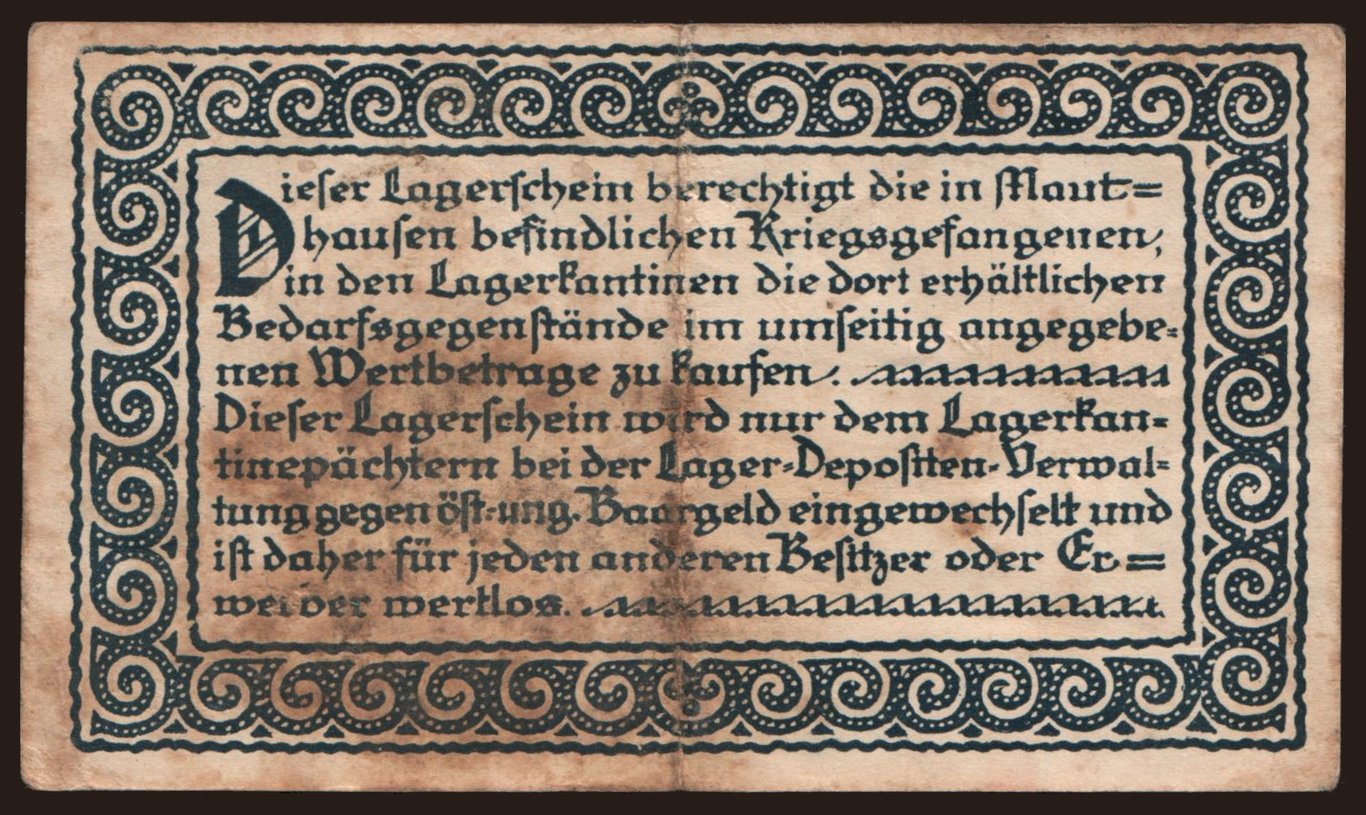 Dieser Lagerschein berechtigt die in Maut=
hausen befindlichen Kriegsgefangenen,
in den Lagerkantinen die dort erhältlichen
Bedarfsgegenstände im umseitig angegebe=
nen Wertbetrage zu kaufen.
Dieser Lagerschein wird nur dem Lagerkan=
tinepächtern bei der Lager=Depositen=Verwal=
tung gegen öst.=ung. Baargeld eingewechselt und
ist daher für jeden anderen Besitzer oder Er=
werber wertlos.